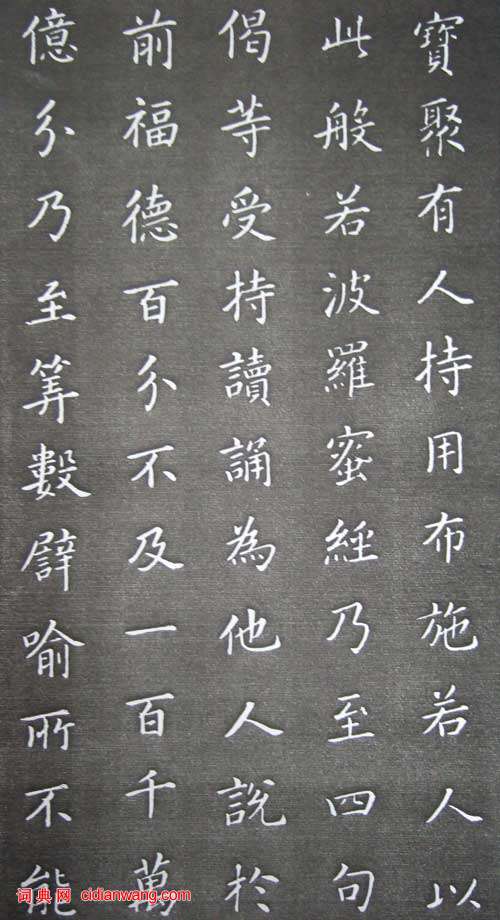 寶聚有人持用布施若人以
此般若波羅蜜經乃至四句
偈等受持讀誦為他人說於
前福德百分不及一百千萬
億分乃至筭數譬喻所不能
词典网 cidianwang.com